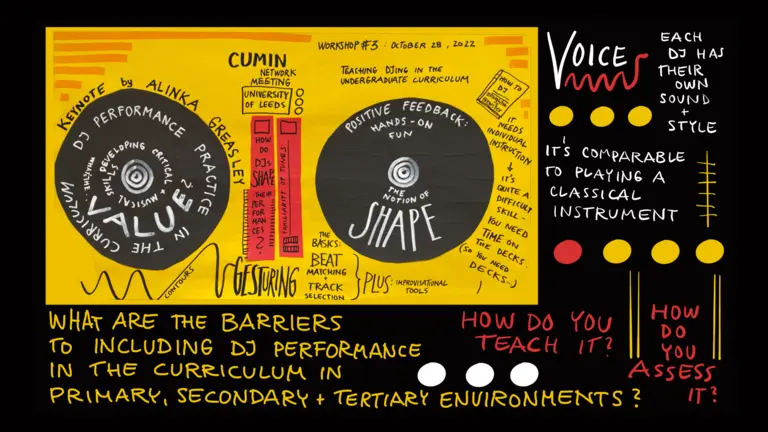 WORKSHOP #3 : OCTOBER 28, 2022
CUMIN
NETWORK
MEETING
UNIVERSITY
OF LEEDS
TEACHING DJING IN THE
UNDERGRADUATE CURRICULUM
KEYNOTE by ALINKA GREASLEY
DJ PERFORMANCE PRACTICE
IN THE CURRICULUM
DEVELOPING CRITICAL & MUSICAL
SKILLS
VALUE?
HOW
DO
DJs
SHAPE
THEIR
PER
FOR
MAN
CES
?
FAMILIARITY OF TUNES
POSITIVE FEEDBACK:
HANDS-ON
FUN
THE NOTION OF
SHAPE
HOW TO
DJ
IT
NEEDS
INDIVIDUAL
INSTRUCTION
IT'S
QUITE A
DIFFICULT
SKILL -
YOU NEED
TIME ON
THE DECKS.
(SO YOU NEED
DECKS...)
CONTOURS
GESTURING
THE
BASICS:
BEAT
MATCHING
+
TRACK
SELECTION
PLUS: IMPROVISATIONAL
TOOLS
VOICE
EACH
DJ HAS
THEIR
OWN
SOUND
+
STYLE
IT'S COMPARABLE
TO PLAYING A
CLASSICAL
INSTRUMENT
WHAT ARE THE BARRIERS
TO INCLUDING DJ PERFORMANCE
IN THE CURRICULUM IN
PRIMARY, SECONDARY + TERTIARY ENVIRONMENTS?
HOW DO YOU
TEACH IT?
HOW
DO
YOU
ASSESS
IT?